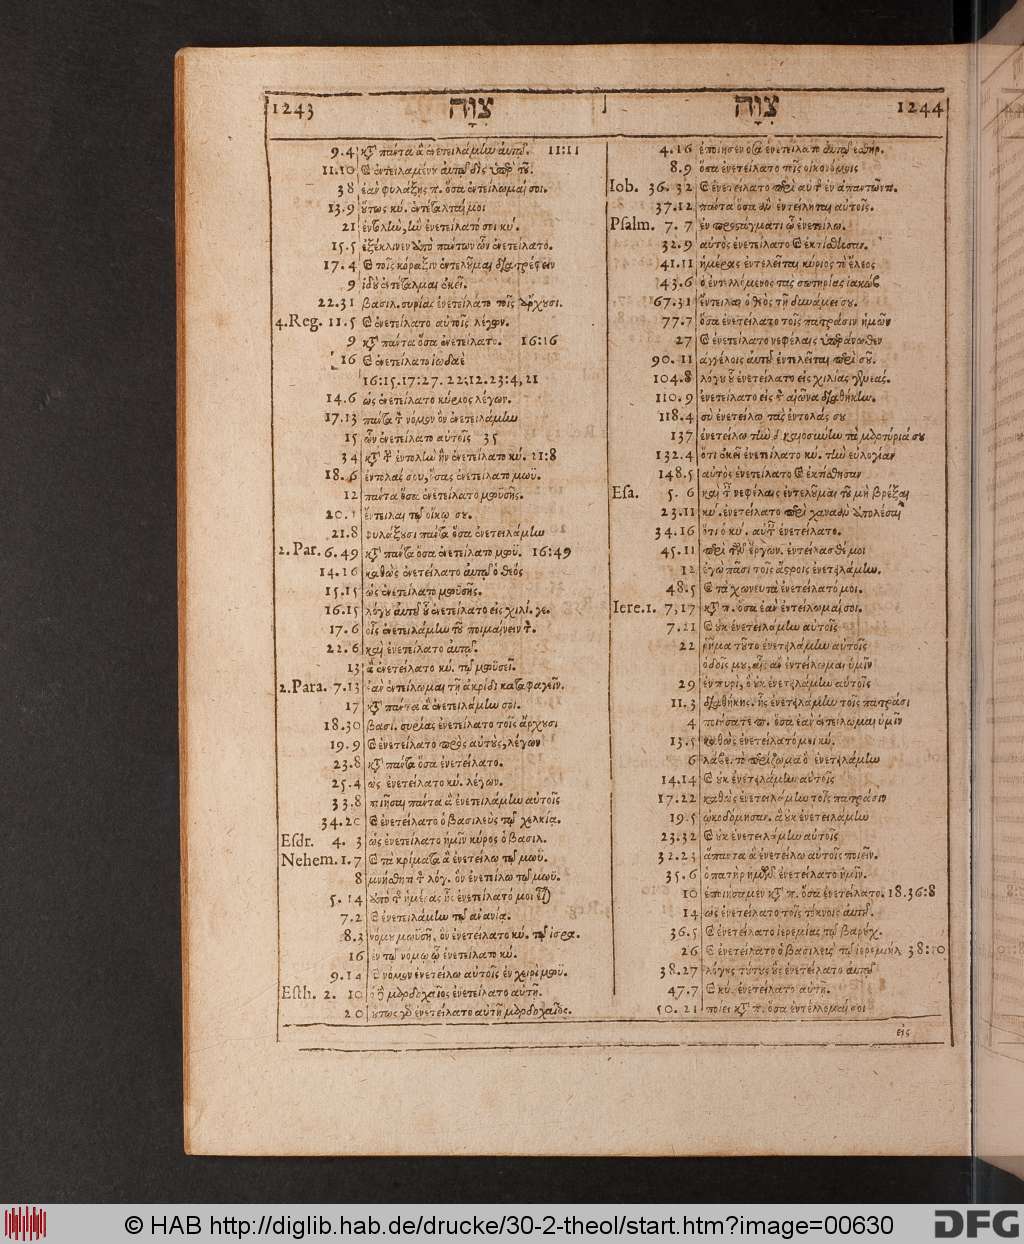 1243 צִוָּה צִוָּה 1244
9.4 πάντα ἃ ἐνετειλάμην αὐτῷ. 11:11
11.10
38 ἐὰν φυλάξῃς π. ὅσα ἐντείλωμαί σοι.
13.9 οὕτως κύ. ἐντέταλταί μοι
21 ἐντολὴν, ἣν ἐνετείλατό σοι κύ.
15.5 ἐξέκλινεν ἀπὸ πάντων ὧν ἐνετείλατο.
17.4 τοῖς κόραξιν ἐντελοῦμαι διατρέφειν
9 ἰδοὺ ἐντέταλμαι ἐκεῖ.
22.31 βασιλ. συρίας ἐνετείλατο τοῖς ἄρχουσι.
4.Reg. 11.5 ἐνετείλατο αὐτοῖς λέγων.
9 πάντα ὅσα ἐνετείλατο. 16:16
16 ἐνετείλατο ἰωδαὲ
16:15.17:27. 22:12. 23:4, 21
14.6 ὡς ἐνετείλατο κύριος λέγων.
17.13 πάντα νόμον ὃν ἐνετειλάμην
15 ὧν ἐνετείλατο αὐτοῖς 35
34 ἐντολὴν ἣν ἐνετείλατο κύ. 21:8
18.6 ἐντολάς σου, ὅσας ἐνετείλατο μωϋ.
12 πάντα ὅσα ἐνετείλατο μωϋσῆς.
20.1 ἔντειλαι τῷ οἴκῳ σου.
21.8 φυλάξουσι πάντα ὅσα ἐνετειλάμην
1.Par. 6.49 πάντα ὅσα ἐνετείλατο μωϋ. 16:49
14.16 καθὼς ἐνετείλατο αὐτῷ ὁ θεός
15.15 ὡς ἐνετείλατο μωϋσῆς.
16.15 λόγου αὐτοῦ οὗ ἐνετείλατο εἰς χιλί. γε.
17.6 οἷς ἐνετειλάμην τοῦ ποιμαίνειν
22.6 καὶ ἐνετείλατο αὐτῷ.
13 ἃ ἐνετείλατο κύ. τῷ μωϋσεῖ.
2.Para. 7.13 ἐὰν ἐντείλωμαι τῇ ἀκρίδι καταφαγεῖν.
17 πάντα ἃ ἐνετειλάμην σοι.
18.30 βασι. συρίας ἐνετείλατο τοῖς ἄρχουσι
19.9 ἐνετείλατο πρὸς αὐτοὺς, λέγων
23.8 πάντα ὅσα ἐνετείλατο.
25.4 ὡς ἐνετείλατο κύ. λέγων.
33.8 ποιῆσαι πάντα ἃ ἐνετειλάμην αὐτοῖς
34.20 ἐνετείλατο ὁ βασιλεὺς τῷ χελκίᾳ.
Esdr. 4. 3 ὡς ἐνετείλατο ἡμῖν κύρος ὁ βασιλ.
Nehem. 1.7 τὰ κρίματα ἃ ἐνετείλω τῷ μωϋ.
8 μνήσθητι λόγ. ὃν ἐνετείλω τῷ μωϋ.
5.14 ἀπὸ ἡμέρας ἧς ἐνετείλατό μοι
7.2 ἐνετειλάμην τῷ ἀνανίᾳ.
8.1 ἐνετείλατο κύ. τῷ ἰσρα.
16 ἐν τῷ νόμῳ ᾧ ἐνετείλατο κύ.
9.14 νόμον ἐνετείλω αὐτοῖς ἐν χειρὶ μωϋ.
Esth. 2. 10 μαρδοχαῖος ἐνετείλατο αὐτῇ.
20 οὕτως γὰρ ἐνετείλατο αὐτῇ μαρδοχαῖος.
4.16 ἐποίησεν ὅσα ἐνετείλατο αὐτῷ ἐσθήρ.
8.9 ὅσα ἐνετείλατο τοῖς οἰκονόμοις
Iob. 36. 32
37.12 πάντα ὅσα ἂν ἐντείληται αὐτοῖς.
Psalm. 7. 7 ἐν προστάγματι ᾧ ἐνετείλω.
32.9 αὐτὸς ἐνετείλατο ἐκτίσθησαν.
41.11 ἡμέρας ἐντελεῖται κύριος τὸ ἔλεος
43.6 ὁ ἐντελλόμενος τὰς σωτηρίας ἰακὼβ
67.31 ἔντειλαι ὁ θεὸς τῇ δυνάμει σου.
77.7 ὅσα ἐνετείλατο τοῖς πατράσιν ἡμῶν
27 ἐνετείλατο νεφέλαις ὑπεράνωθεν
90. 11 ἀγγέλοις αὐτοῦ ἐντελεῖται περὶ σοῦ.
104.8 λόγου οὗ ἐνετείλατο εἰς χιλίας γενεάς.
110.9 ἐνετείλατο εἰς αἰῶνα διαθήκην.
118.4 σὺ ἐνετείλω τὰς ἐντολάς σου
137 ἐνετείλω τὴν δικαιοσύνην τὰ μαρτύριά σου
132.4 ὅτι ἐκεῖ ἐνετείλατο κύ. τὴν εὐλογίαν
148.5 αὐτὸς ἐνετείλατο ἐκτίσθησαν
Esa. 5. 6 καὶ νεφέλαις ἐντελοῦμαι τοῦ μὴ βρέξαι
23.11 κύ. ἐνετείλατο περὶ χαναὰν ἀπολέσαι
34.16 ὅτι ὁ κύ. αὐτ ἐνετείλατο.
45.11 περὶ τῶν ἔργων. ἐντείλασθέ μοι
12 ἐγὼ πᾶσι τοῖς ἄστροις ἐνετειλάμην.
48.5 τὰ χωνευτὰ ἐνετείλατό μοι.
Iere.1. 7, 17 π. ὅσα ἐὰν ἐντείλωμαί σοι.
7.21 οὐκ ἐνετειλάμην αὐτοῖς
22 ῥῆμα τοῦτο ἐνετειλάμην αὐτοῖς
ὁδοῖς μου, αἷς ἂν ἐντείλωμαι ὑμῖν
29 ἐν πυρὶ, ὃ οὐκ ἐνετειλάμην αὐτοῖς
11.3 διαθήκης. ἧς ἐνετειλάμην τοῖς πατράσι
4 ποιήσατε π. ὅσα ἐὰν ἐντείλωμαι ὑμῖν
13.5 καθὼς ἐνετείλατό μοι κύ.
6 λάβε. τὸ περίζωμα ὃ ἐνετειλάμην
14.14 οὐκ ἐνετειλάμην αὐτοῖς
17.22 καθὼς ἐνετειλάμην τοῖς πατράσιν
19.5 ᾠκοδόμησαν. ἃ οὐκ ἐνετειλάμην
23.32 οὐκ ἐνετειλάμην αὐτοῖς
32.23 ἅπαντα ἃ ἐνετείλω αὐτοῖς ποιεῖν.
35.6 ὁ πατὴρ ἡμῶν ἐνετείλατο ἡμῖν.
10 ἐποιήσαμεν π. ὅσα ἐνετείλατο. 18.36:8
14 ὡς ἐνετείλατο τοῖς τέκνοις αὐτοῦ.
36.5 ἐνετείλατο ἱερεμίας τῷ βαρούχ.
26 ἐνετείλατο ὁ βασιλεὺς τῷ ἱερεμιήλ 38:10
38.27 λόγους τούτους οὓς ἐνετείλατο αὐτῷ
47.7 κύ. ἐνετείλατο αὐτῇ.
50.21 ποίει π. ὅσα ἐντέλλομαί σοι
εἰς
© HAB http://diglib.hab.de/drucke/30-2-theol/start.htm?image=00630 DFG